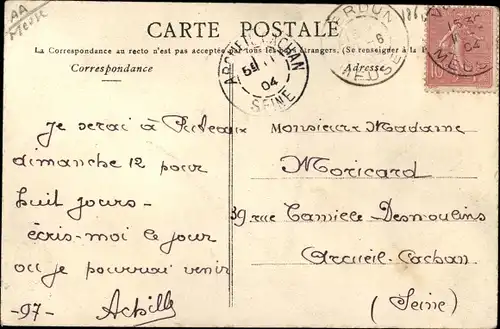 AA
Meuse
CARTE POSTALE
La Correspondance au recto n'est pas acceptée par tous les pays étrangers. (Se renseigner à la P
Correspondance
Adresse
VERDUN
MEUSE
ARCUEIL-CACHAN
5E 11
04
SEINE
15 30
04
MEUSE
10
Je serai à Puteaux
dimanche 12 pour
huit jours -
écris-moi le jour
où je pourrai venir
-97- Achille
Monsieur Madame
Moricard
39 rue Camille Desmoulins
Arcueil-Cachan
(Seine)